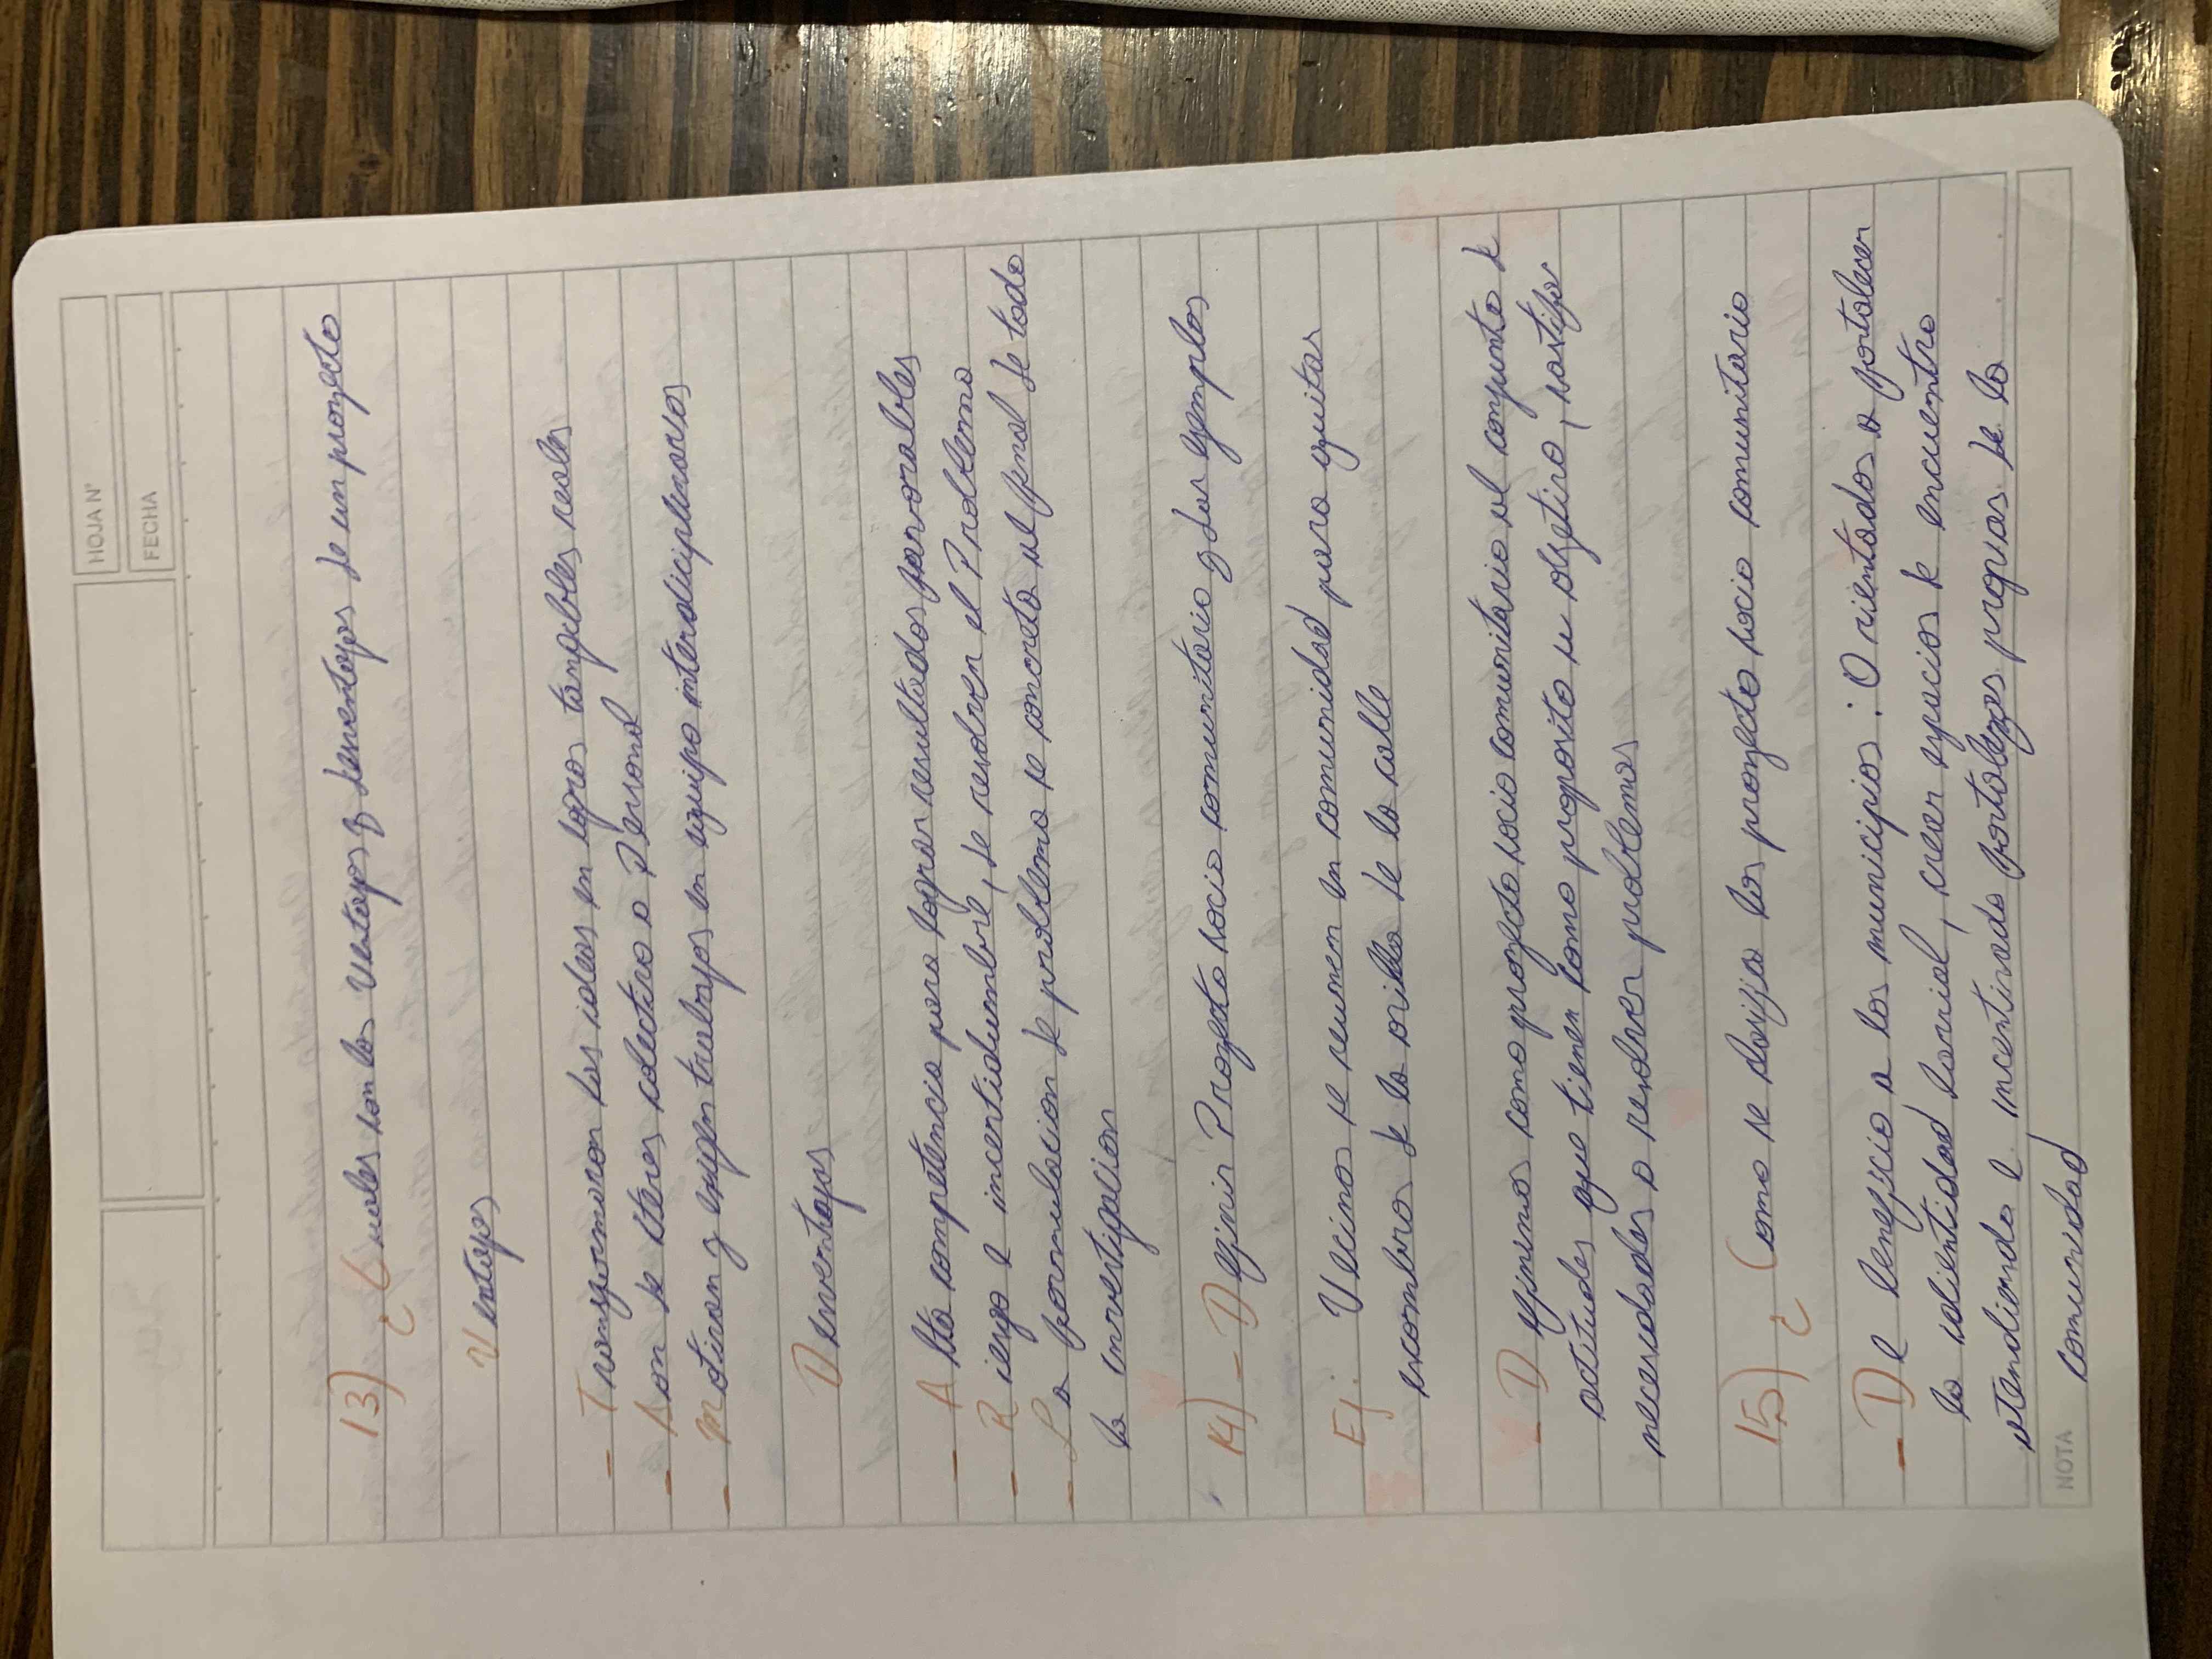 HOJA Nº
FECHA
13) ¿Cuales son las Ventajas y desventajas de un proyecto
Ventajas
- Transforman las ideas en logros tangibles reales
- Son de interes colectivo o Personal
- Motivan y exigen trabajos en equipo interdiciplinarios
Desventajas
- Alta competencia para lograr resultados favorables
- Riesgo e incertidumbre, se resolver el Problema
- La formulacion de problema se concreta al final de toda
la investigacion
14) - Definir Proyecto socio comunitario y dar ejemplos
Ej: Vecinos se reunen en comunidad para quitar
escombros de la orilla de la calle
- Definimos como proyecto socio comunitario al conjunto de
actitudes que tienen como proposito u objetivo, satisfaer
necesidades o resolver problemas
15) ¿Como se los proyecto socio comunitario
- De beneficio a los municipios: Orientados a fortalecer
la identidad barrial, crear espacios de encuentro
atendiendo e incentivado fortalezas propias de la
comunidad
NOTA